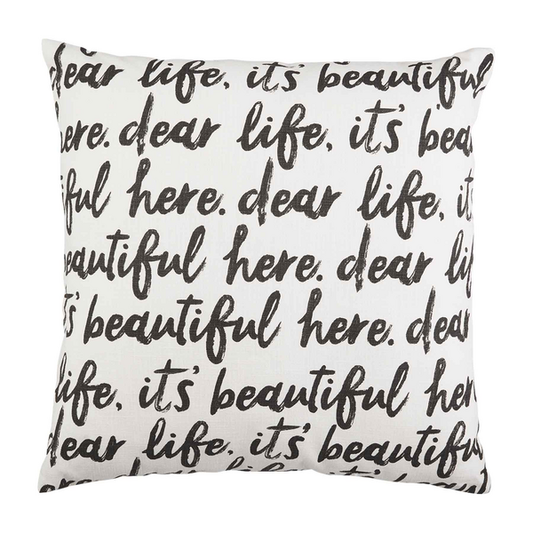 dear life, it's beautiful
here. dear life, it's beau
iful here. dear life, it
eautiful here. dear lif
t's beautiful here. dear
life, it's beautiful her
dear life. it's beautiful
ere. dear life, it's beautif